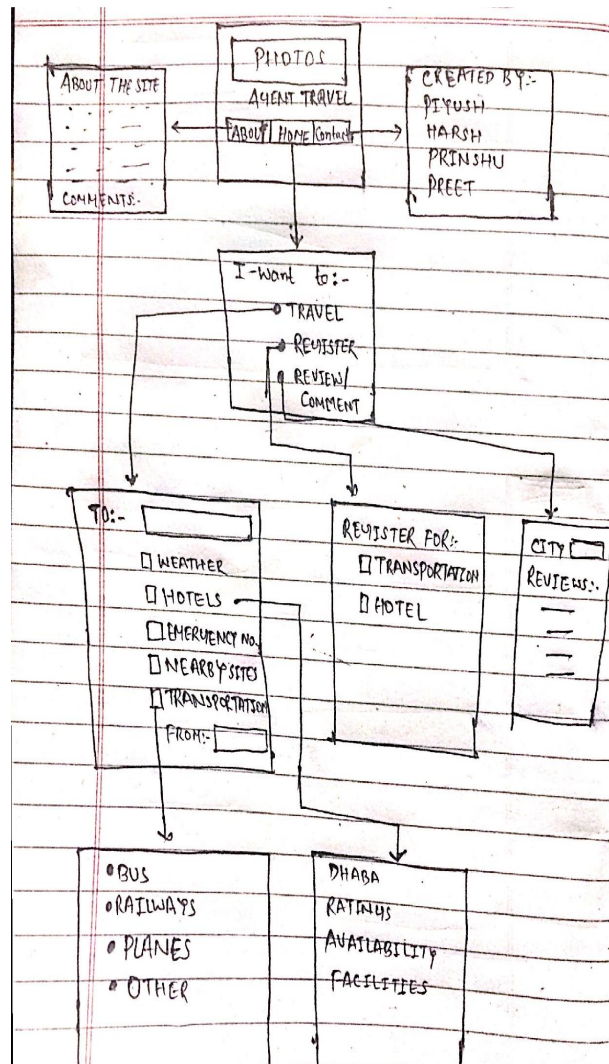 PHOTOS
AGENT TRAVEL
ABOUT HOME Contact
ABOUT THE SITE
COMMENTS:-
CREATED BY:-
PIYUSH
HARSH
PRINSHU
PREET
I-Want to:-
TRAVEL
REGISTER
REVIEW/
COMMENT
TO:-
WEATHER
HOTELS
EMERGENCY NO.
NEARBY SITES
TRANSPORTATION
FROM:-
REGISTER FOR:-
TRANSPORTATION
HOTEL
CITY
REVIEWS:-
BUS
RAILWAYS
PLANES
OTHER
DHABA
RATINGS
AVAILABILITY
FACILITIES